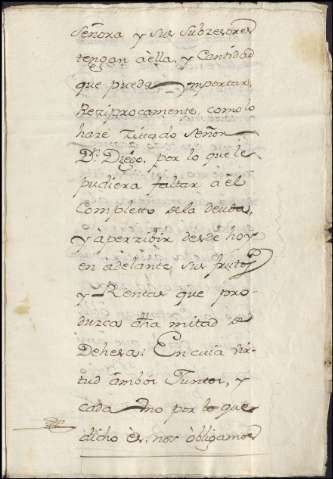 Señora y sus Subzesores
tengan àella, y Cantidad
que pueda importar,
Reziprocamente, como lo
haze Zitado Señor
Dⁿ. Diego, por lo que le
pudiera faltar à el
Completo dela deuda,
y àperzivir desde hoy
en adelante, sus frutos
y Rentas que pro-
duzca dha mitad de
Dehesa: En cuia vir-
tud ambos Juntos, y
cada Uno por lo que
dicho es, nos òbligamos